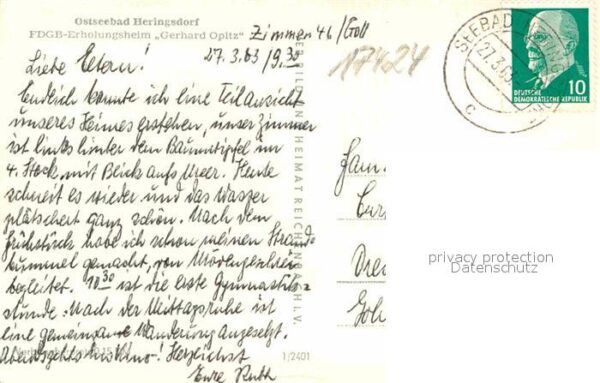 Ostseebad Heringsdorf
FDGB-Erholungsheim „Gerhard Opitz“
Zimmer 46/Goll
27.3.63/9.30
17424
Liebe Eltern!
Endlich konnte ich eine Teilansicht
unseres Heimes erstehen, unser Zimmer
ist links hinter dem Baumwipfel im
4. Stock mit Blick aufs Meer. Heute
schneit es wieder und das Wasser
plätschert ganz schön. Nach dem
Frühstück habe ich schon meinen Strand-
bummel gemacht, von Möwengeschrei
begleitet. 10.30 ist die erste Gymnastik-
stunde. Nach der Mittagsruhe ist
eine gemeinsame Wanderung angesetzt.
Abends gehts ins Kino! Herzlichst
Eure Ruth
1/2401
BILD UND HEIMAT REICHENBACH I. V.
Fam.
SEEBAD
27.3.63
C
10
DEUTSCHE
DEMOKRATISCHE REPUBLIK
privacy protection
Datenschutz